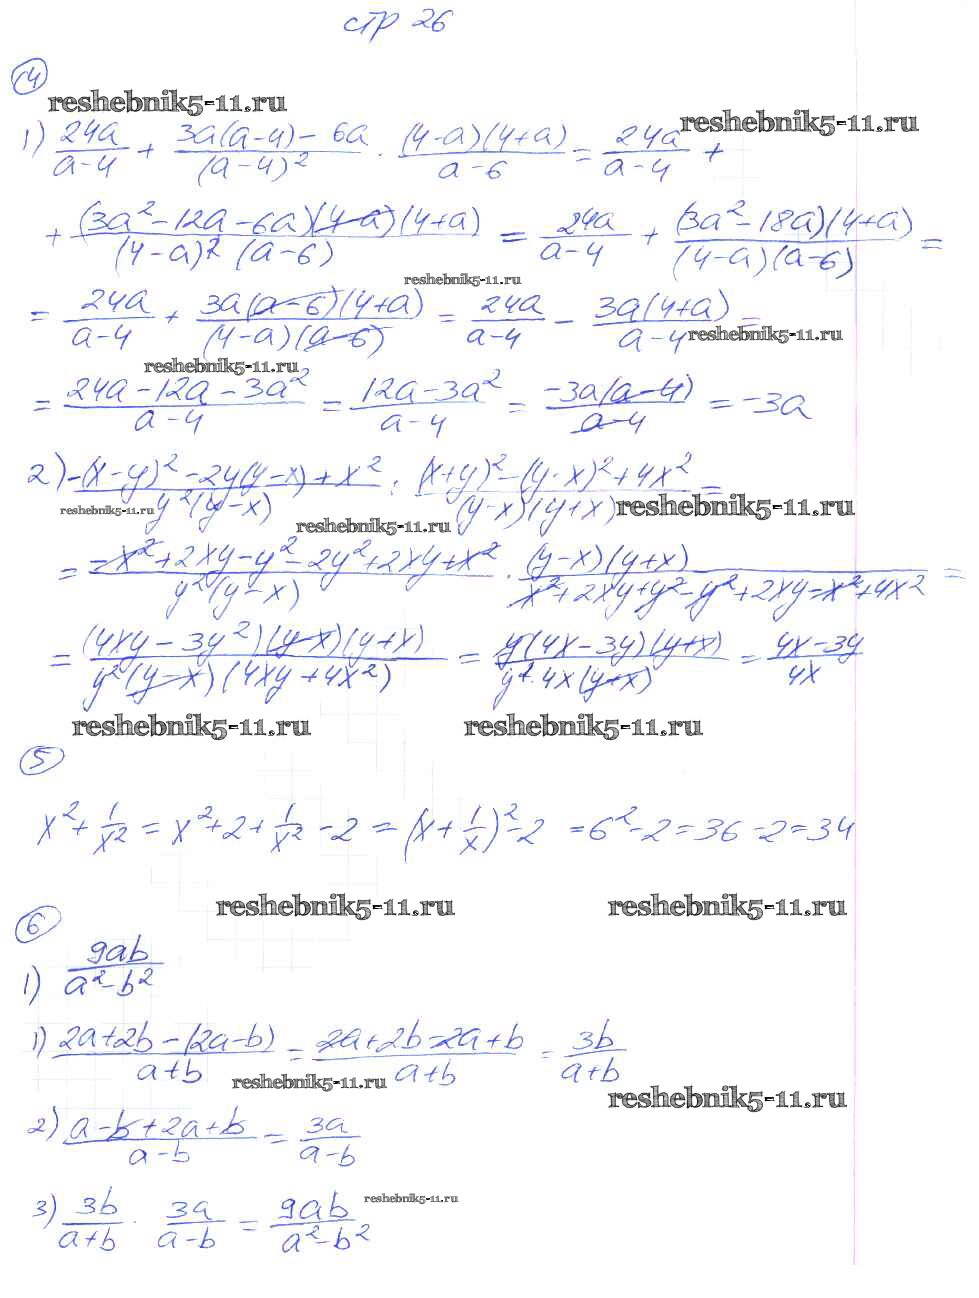 стр 26
4
reshebnik5-11.ru
reshebnik5-11.ru
1) 24a/(a-4) + (3a(a-4) - 6a)/(a-4)² · (4-a)(4+a)/(a-6) = 24a/(a-4) +
+ (3a² - 12a - 6a)(4-a)(4+a)/((4-a)² (a-6)) = 24a/(a-4) + (3a² - 18a)(4+a)/((4-a)(a-6)) =
reshebnik5-11.ru
= 24a/(a-4) + 3a(a-6)(4+a)/((4-a)(a-6)) = 24a/(a-4) - 3a(4+a)/(a-4) =
reshebnik5-11.ru
reshebnik5-11.ru
= (24a - 12a - 3a²)/(a-4) = (12a - 3a²)/(a-4) = -3a(a-4)/(a-4) = -3a
2) (-(x-y)² - 2y(y-x) + x²)/(y²(y-x)) : ((x+y)² - (y-x)² + 4x²)/((y-x)(y+x)) =
reshebnik5-11.ru
reshebnik5-11.ru
reshebnik5-11.ru
= (-x² + 2xy - y² - 2y² + 2xy + x²)/(y²(y-x)) · (y-x)(y+x)/(x² + 2xy + y² - y² + 2xy - x² + 4x²) =
= (4xy - 3y²)(y-x)(y+x)/(y²(y-x)(4xy + 4x²)) = y(4x - 3y)(y+x)/(y² · 4x(y+x)) = (4x - 3y)/4x
reshebnik5-11.ru
reshebnik5-11.ru
5
x² + 1/x² = x² + 2 + 1/x² - 2 = (x + 1/x)² - 2 = 6² - 2 = 36 - 2 = 34
reshebnik5-11.ru
reshebnik5-11.ru
6
1) 9ab/(a² - b²)
1) (2a + 2b - (2a - b))/(a+b) = (2a + 2b - 2a + b)/(a+b) = 3b/(a+b)
reshebnik5-11.ru
reshebnik5-11.ru
2) (a - b + 2a + b)/(a-b) = 3a/(a-b)
reshebnik5-11.ru
3) 3b/(a+b) · 3a/(a-b) = 9ab/(a² - b²)